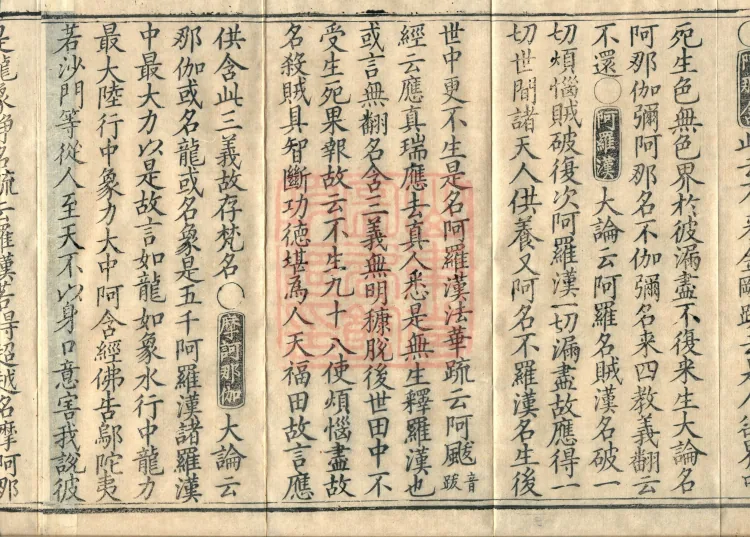 死生色無色界於彼漏盡不復来生大論名
阿那伽彌阿那名不伽彌名来四教義翻云
不還〇阿羅漢大論云阿羅名賊漢名破一
切煩惱賊破復次阿羅漢一切漏盡故應得一
切世間諸天人供養又阿名不羅漢名生後
世中更不生是名阿羅漢法華疏云阿颰音跋
經云應真瑞應云真人悉是無生釋羅漢也
或言無翻名含三義無明糠脫後世田中不
受生死果報故云不生九十八使煩惱盡故
名殺賊具智斷功德堪爲人天福田故言應
供含此三義故存梵名〇摩訶那伽大論云
那伽或名龍或名象是五千阿羅漢諸羅漢
中最大力以是故言如龍如象水行中龍力
最大陸行中象力大中阿含經佛告鄔陀夷
若沙門等從人至天不以身口意害我說彼
是龍象淨名疏云羅漢若得超越名摩阿那